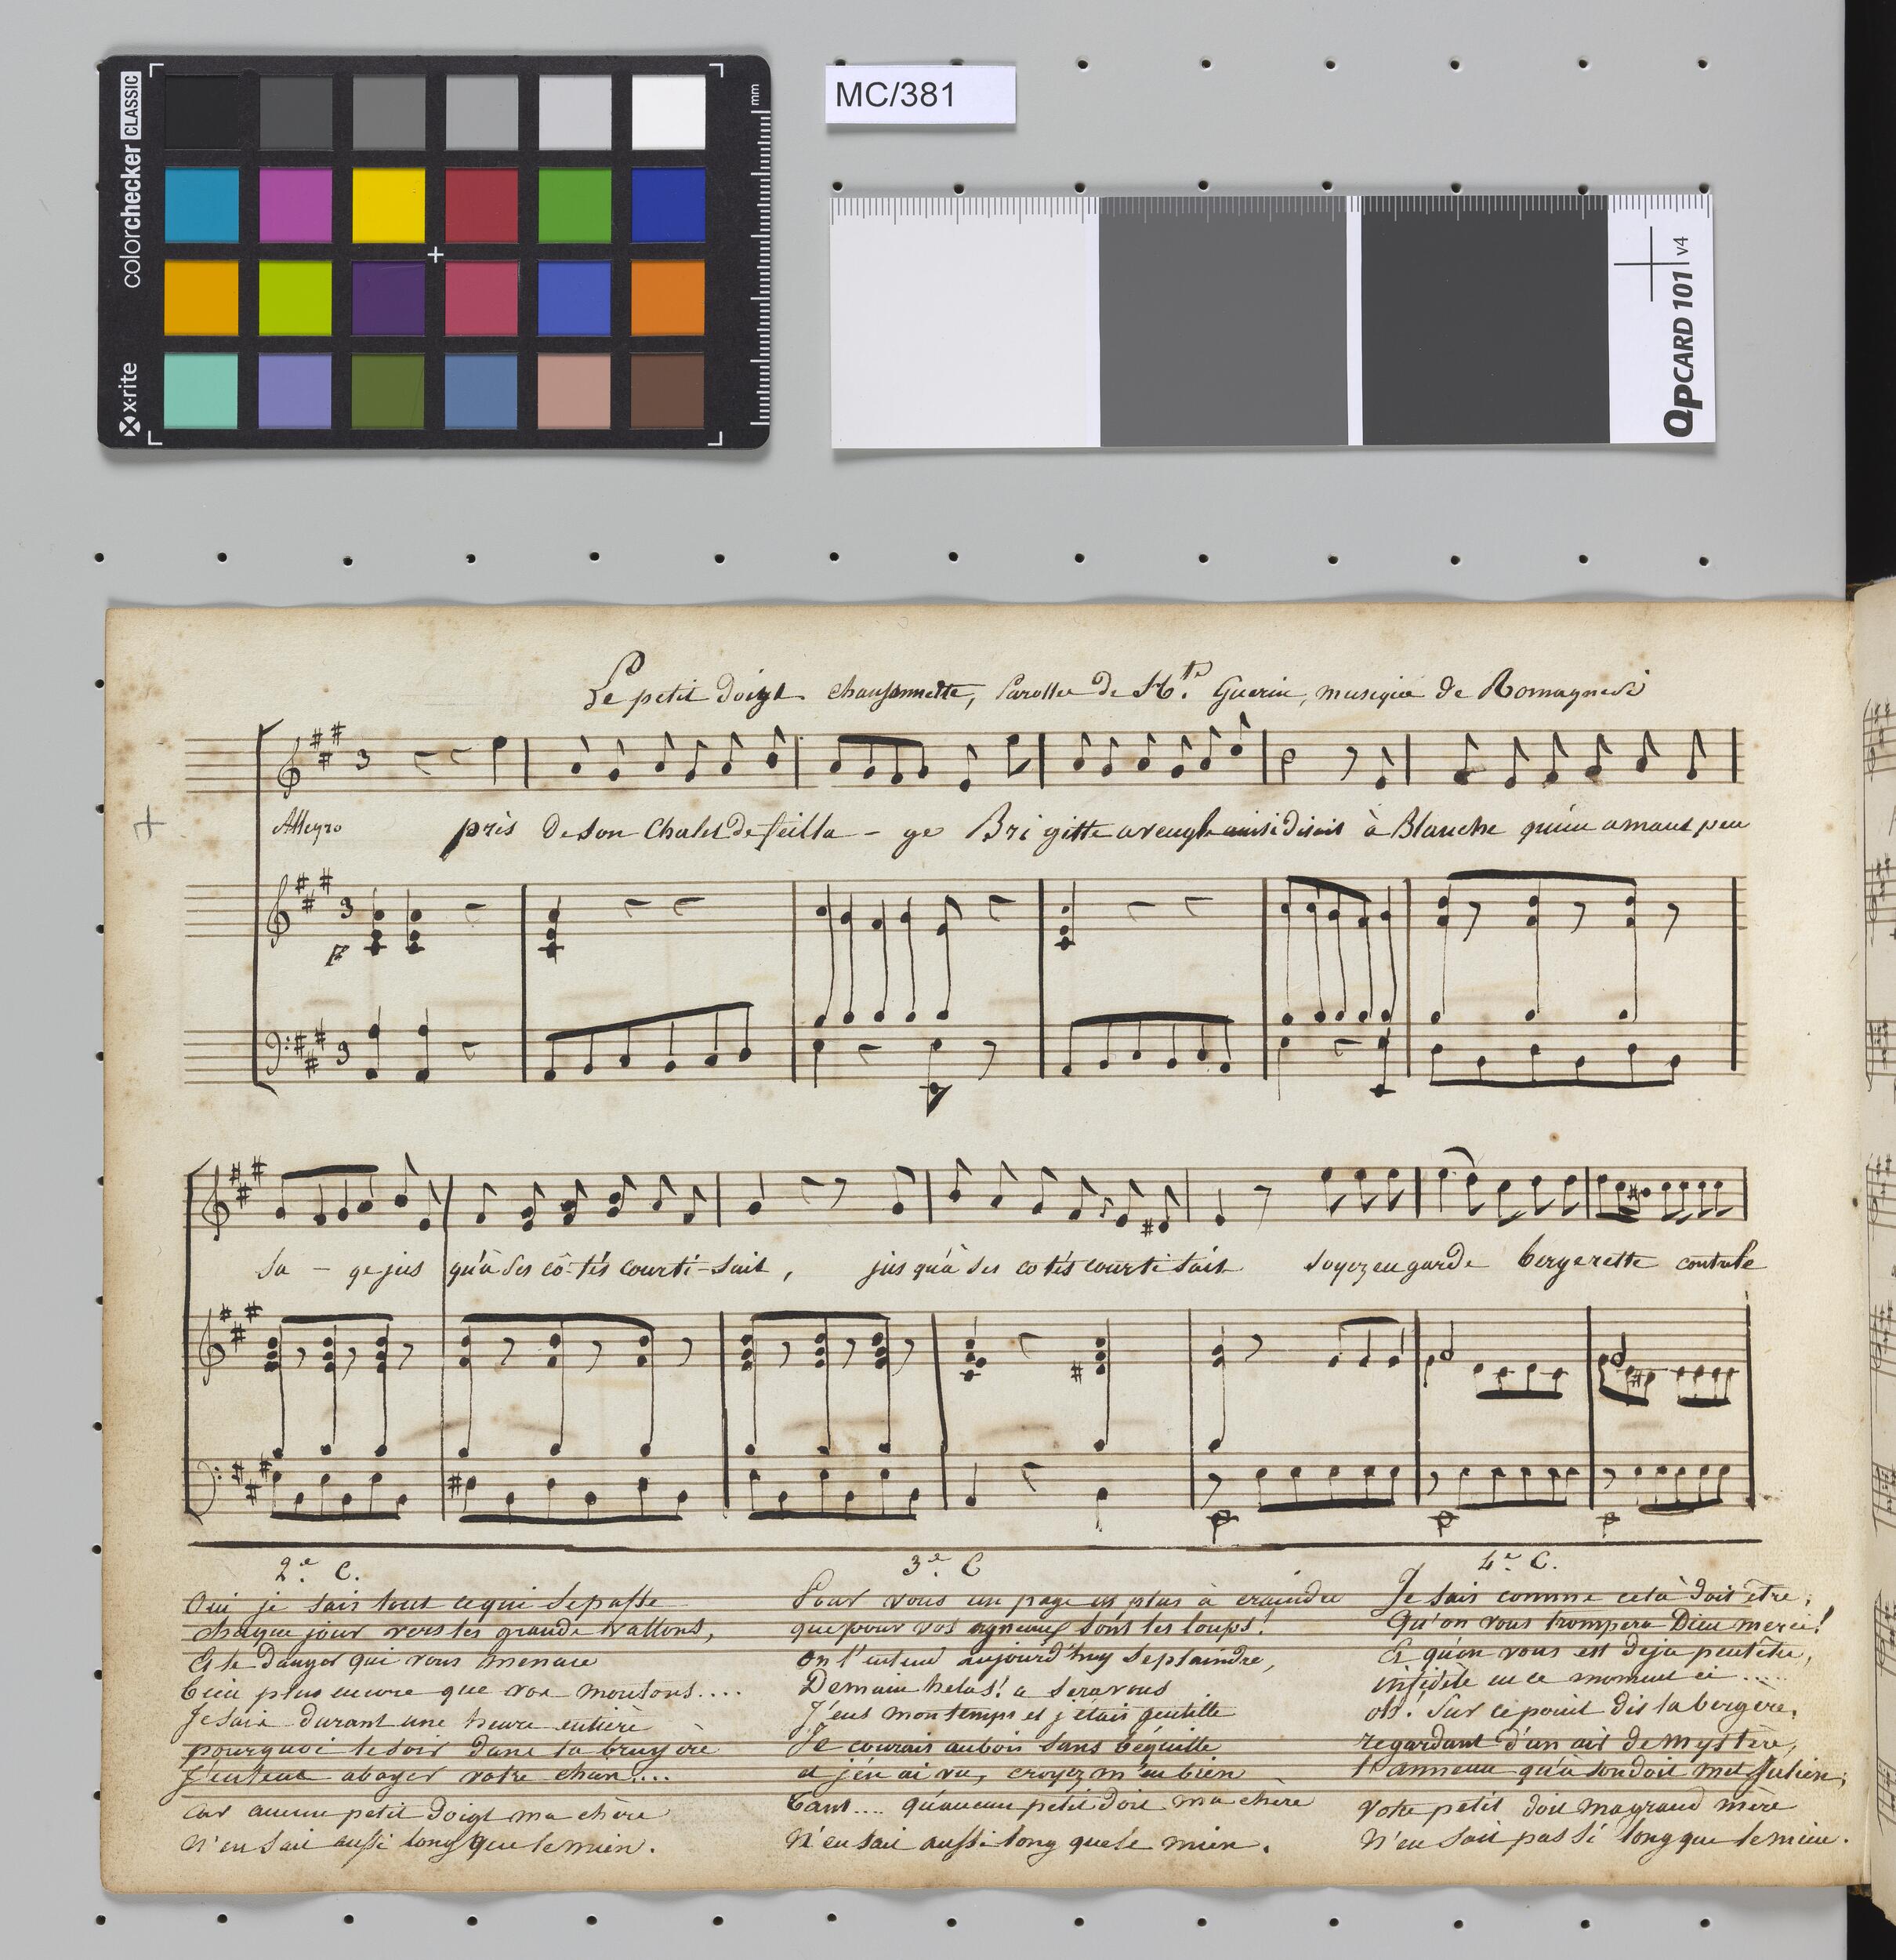 colorchecker CLASSIC
x·rite
mm
MC/381
QPCARD 101 v4
Le petit doigt chansonnette, Parolles de Guerin, musique de Romagnesi
Allegro
près de son Chalet de feilla - ge Brigitte aveugle ainsi disait à Blanche qu'un amant peu
sa - ge jus qu'à ses cô-tés courti-sait, jusqu'à ses cotés courtisait soyez en garde bergerette contre le
2.e C.
Oui je sais tout ce qui se passe
Chaque jour vers les grands vallons,
Et le danger qui vous menace
bien plus encore que vos moutons....
Je sais durant une heure entière
pourquoi le soir dans la bruyère
J'entens aboyer votre chien....
Car aucun petit doigt ma chère
N'en sait aussi long que le mien.
3.e C
Pour vous un page est plus à craindre
que pour vos agneaux sont les loups!
On l'entend aujourd'huy se plaindre,
Demain helas! a sera vous
J'eus mon temps et j'étais gentille
Je courais au bois sans béquille
et j'en ai vu, croyez m'en bien
tant.... qu'aucun petit doit ma chère
N'en sait aussi long que le mien.
4.e C.
Je sais comme celà doit être,
Qu'on vous trompera Dieu merci!
Et qu'on vous est deja peutêtre,
infidèle en ce moment ci .....
oh! Sur ce point dis la bergère,
regardant d'un air de mystère,
l'anneau qu'à son doit met Julien,
Votre petit doit ma grand mère
N'en sait pas si long que le mien.